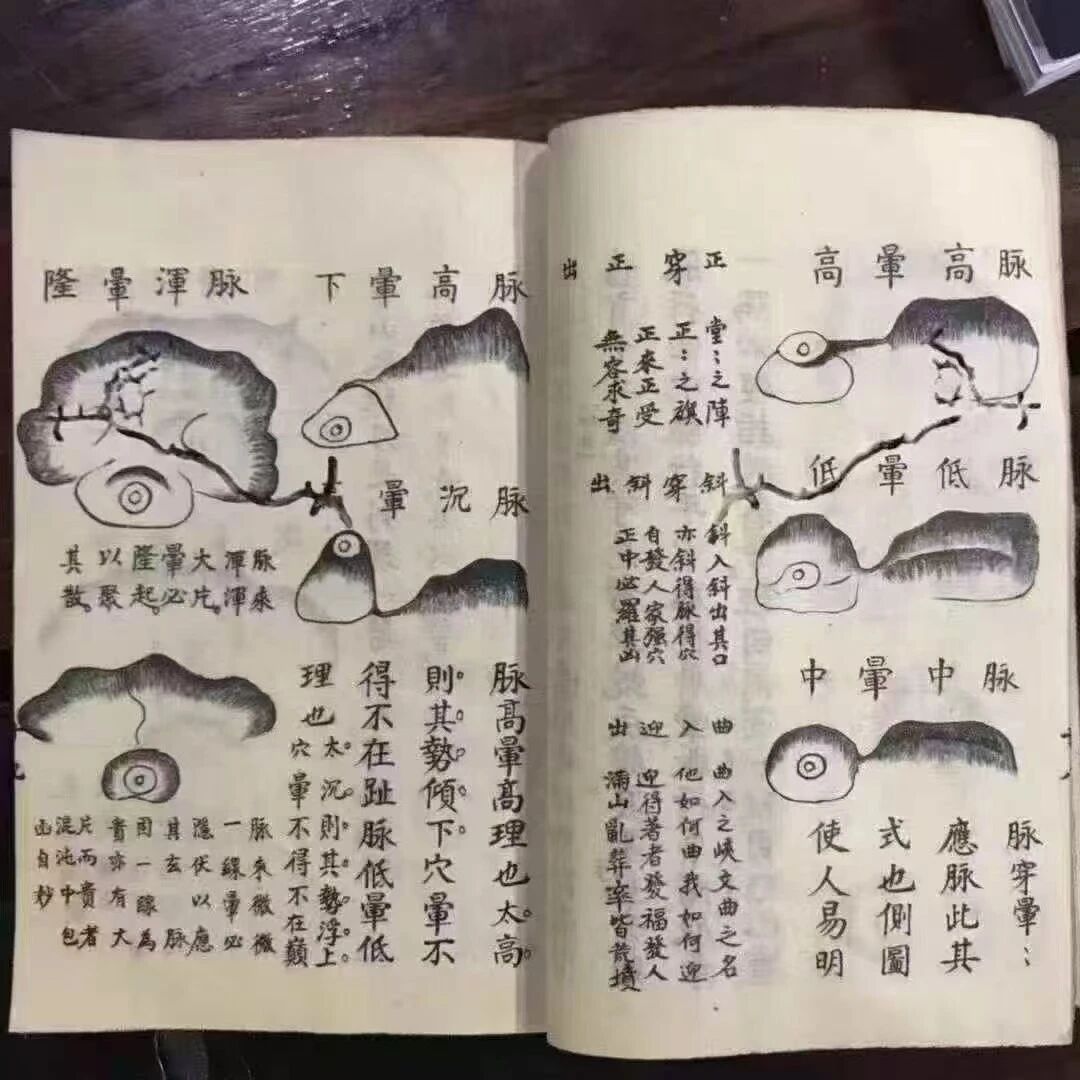 脉高暈高
脉低暈低
脉中暈中
脉穿暈⺀
應脉此其
式也側圖
使人易明
正穿正出
堂⺀之陣
正⺀之旗
正來正受
無容求奇
斜穿斜出
斜入斜出其口
亦斜得脉得穴
自發人家强穴
正中必羅其凶
曲入迎出
曲入之峽文曲之名
他如何曲我如何迎
迎得著者發福發人
滿山亂葬率皆荒墳
脉高暈下
脉沉暈
脉高暈高理也太高。
則。其。勢。傾。下。穴暈不
得不在趾脉低暈低
理也太。沉。則。其。勢。浮。上。
穴暈不得不在巔
脉渾暈隆
脉來渾渾大片。暈必隆起。以聚其散。
脉來微微
一線暈必
隱伏以應
其玄脉
固一線為
貴亦有大
片而貴者
混沌中包
凶自妙